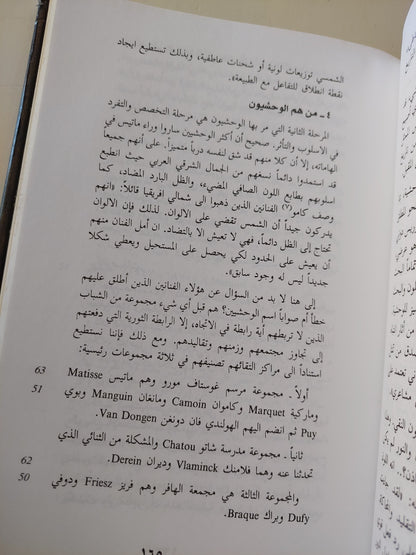 الشمسي توزيعات لونية أو شحنات عاطفية، وبذلك تستطيع ايجاد
نقطة انطلاق للتفاعل مع الطبيعة».
٤ ـ من هم الوحشيون
المرحلة الثانية التي مر بها الوحشيون هي مرحلة التخصص والتفرد
في الأسلوب والتأثر. صحيح أن أكثر الوحشيين ساروا وراء ماتيس في
الهاماته، إلا أن كلا منهم قد شق لنفسه درباً متميزا. على أنهم جميعاً
قد استمدوا دائماً نسغهم من الجمال الشرقي العربي حيث انطبع
اسلوبهم بطابع اللون الصافي المضيء، والظل البارد المضاد، كما
وصف كامو(٧) الفنانين الذين ذهبوا الى شمالي افريقيا قائلاً: «انهم
يدركون جيداً أن الشمس تقضي على الالوان. لذلك فإن الالوان
تحتاج إلى الظل دائماً، فهي لا تعيش الا بالتضاد. ان أمل الفنان منهم
أن يعيش على الحدود لكي يحصل على المستحيل ويعطي شكلا
جديداً ليس له وجود سابق».
إلى هنا لا بد من السؤال عن هؤلاء الفنانين الذين أطلق عليهم
خطأ أم صواباً اسم الوحشيين؟ هم قبل أي شيء مجموعة من الشباب
الذين لا تربطهم أية رابطة في الاتجاه، إلا الرابطة الثورية التي دفعتهم
إلى تجاوز مجتمعهم وزمنهم وتقاليدهم. ومع ذلك فإننا نستطيع
استناداً الى مراكز التقائهم تصنيفهم في ثلاثة مجموعات رئيسية:
أولاً ـ مجموعة مرسم غوستاف مورو وهم ماتيس Matisse 63
وماركية Marquet وكاموان Camoin ومانغان Manguin وبوي 51
Puy ثم انضم اليهم الهولندي فان دونغن Van Dongen.
ثانيا ـ مجموعة مدرسة شاتو Chatou والمشكلة من الثنائي الذي
تحدثنا عنه وهما فلامنك Vlaminck وديران Derein. 62
والمجموعة الثالثة هي مجمعة الهافر وهم فريز Friesz ودوفي 50
Dufy وبراك Braque.
١٦٥